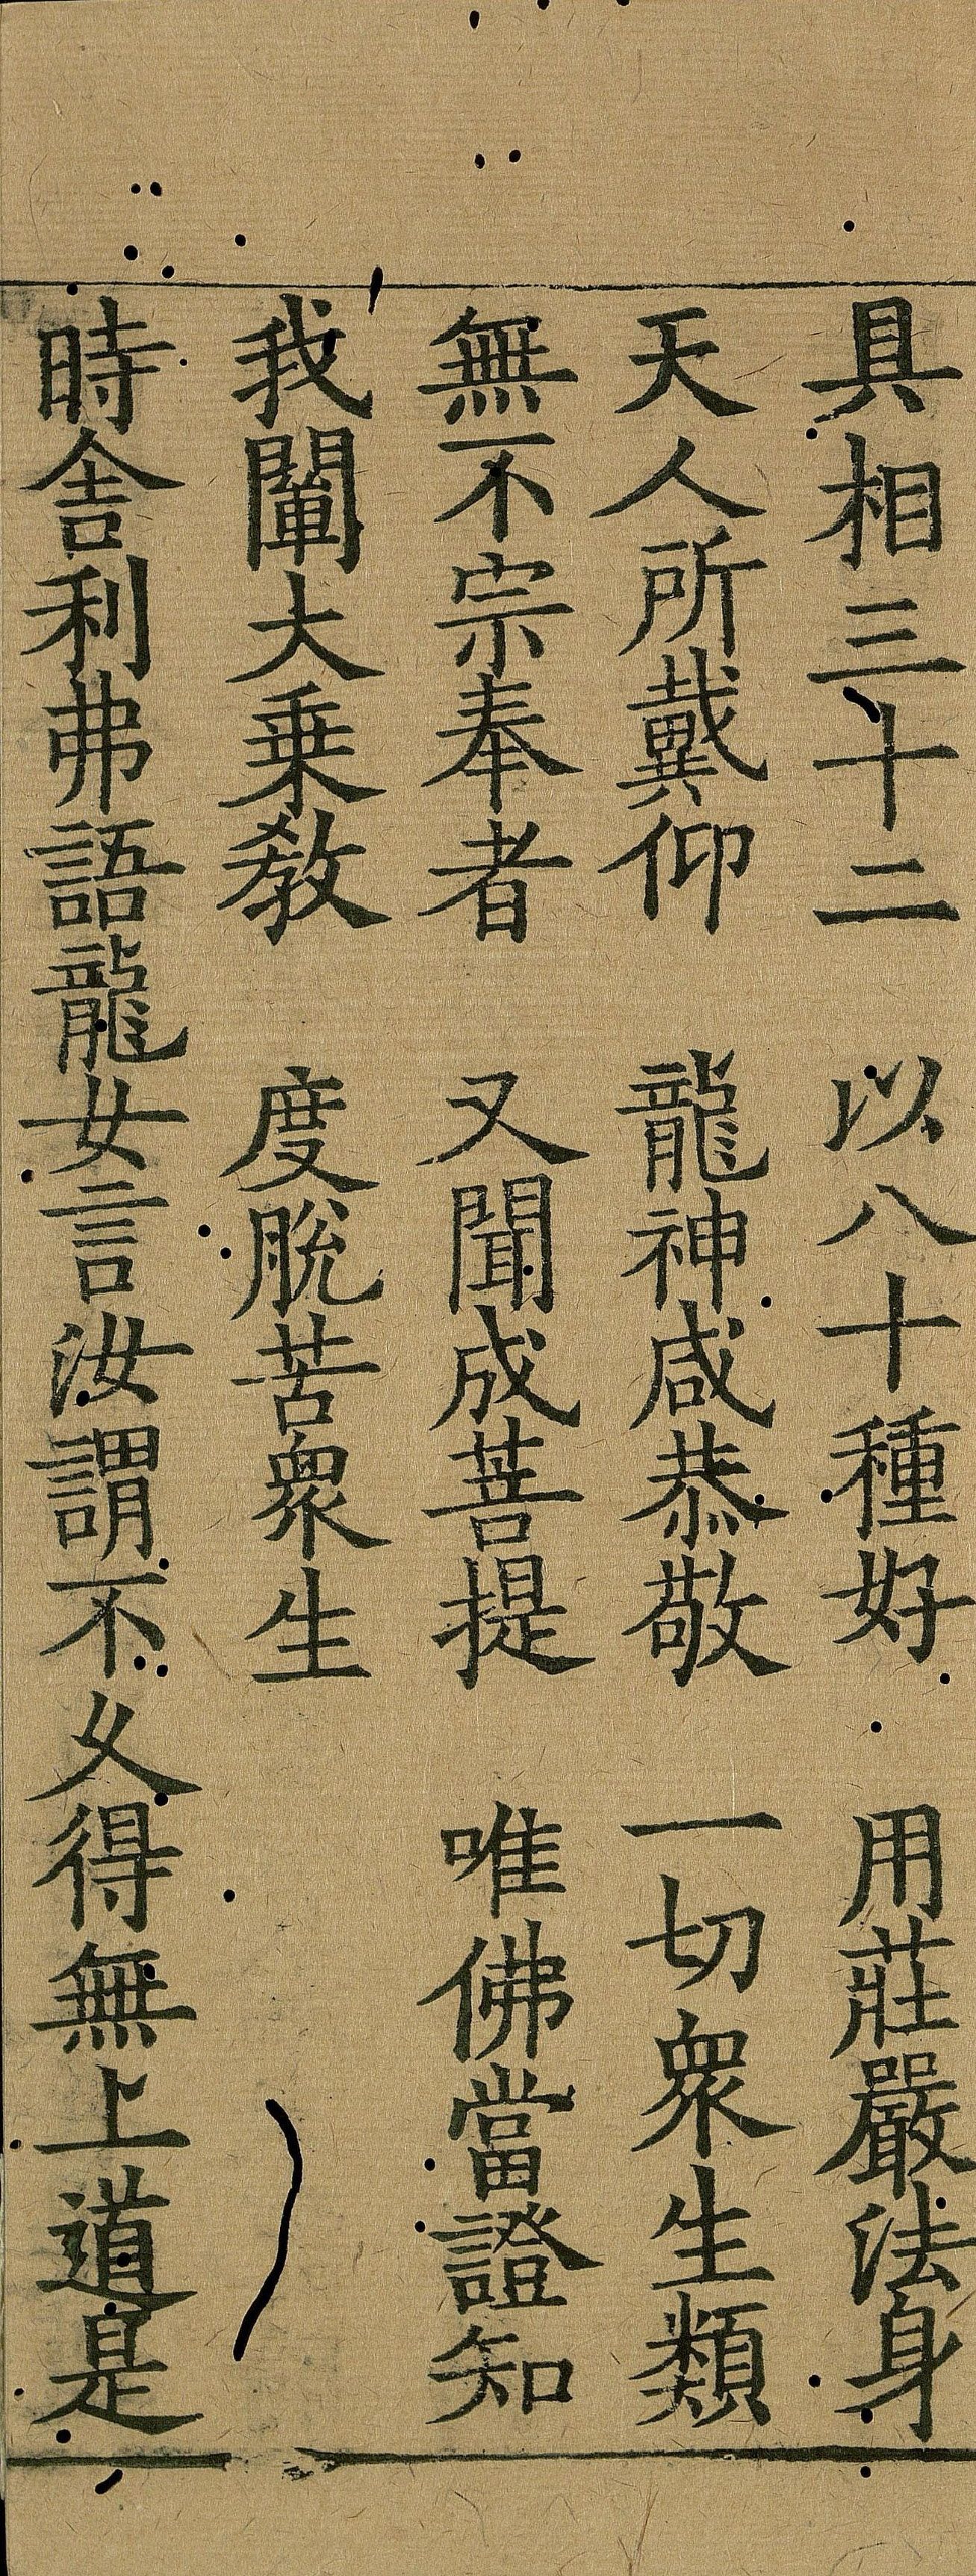 具相三十二　以八十種好　用莊嚴法身
天人所戴仰　龍神咸恭敬　一切衆生類
無不宗奉者　又聞成菩提　唯佛當證知
我闡大乗教　度脫苦衆生
時舍利弗語龍女言汝謂不久得無上道是